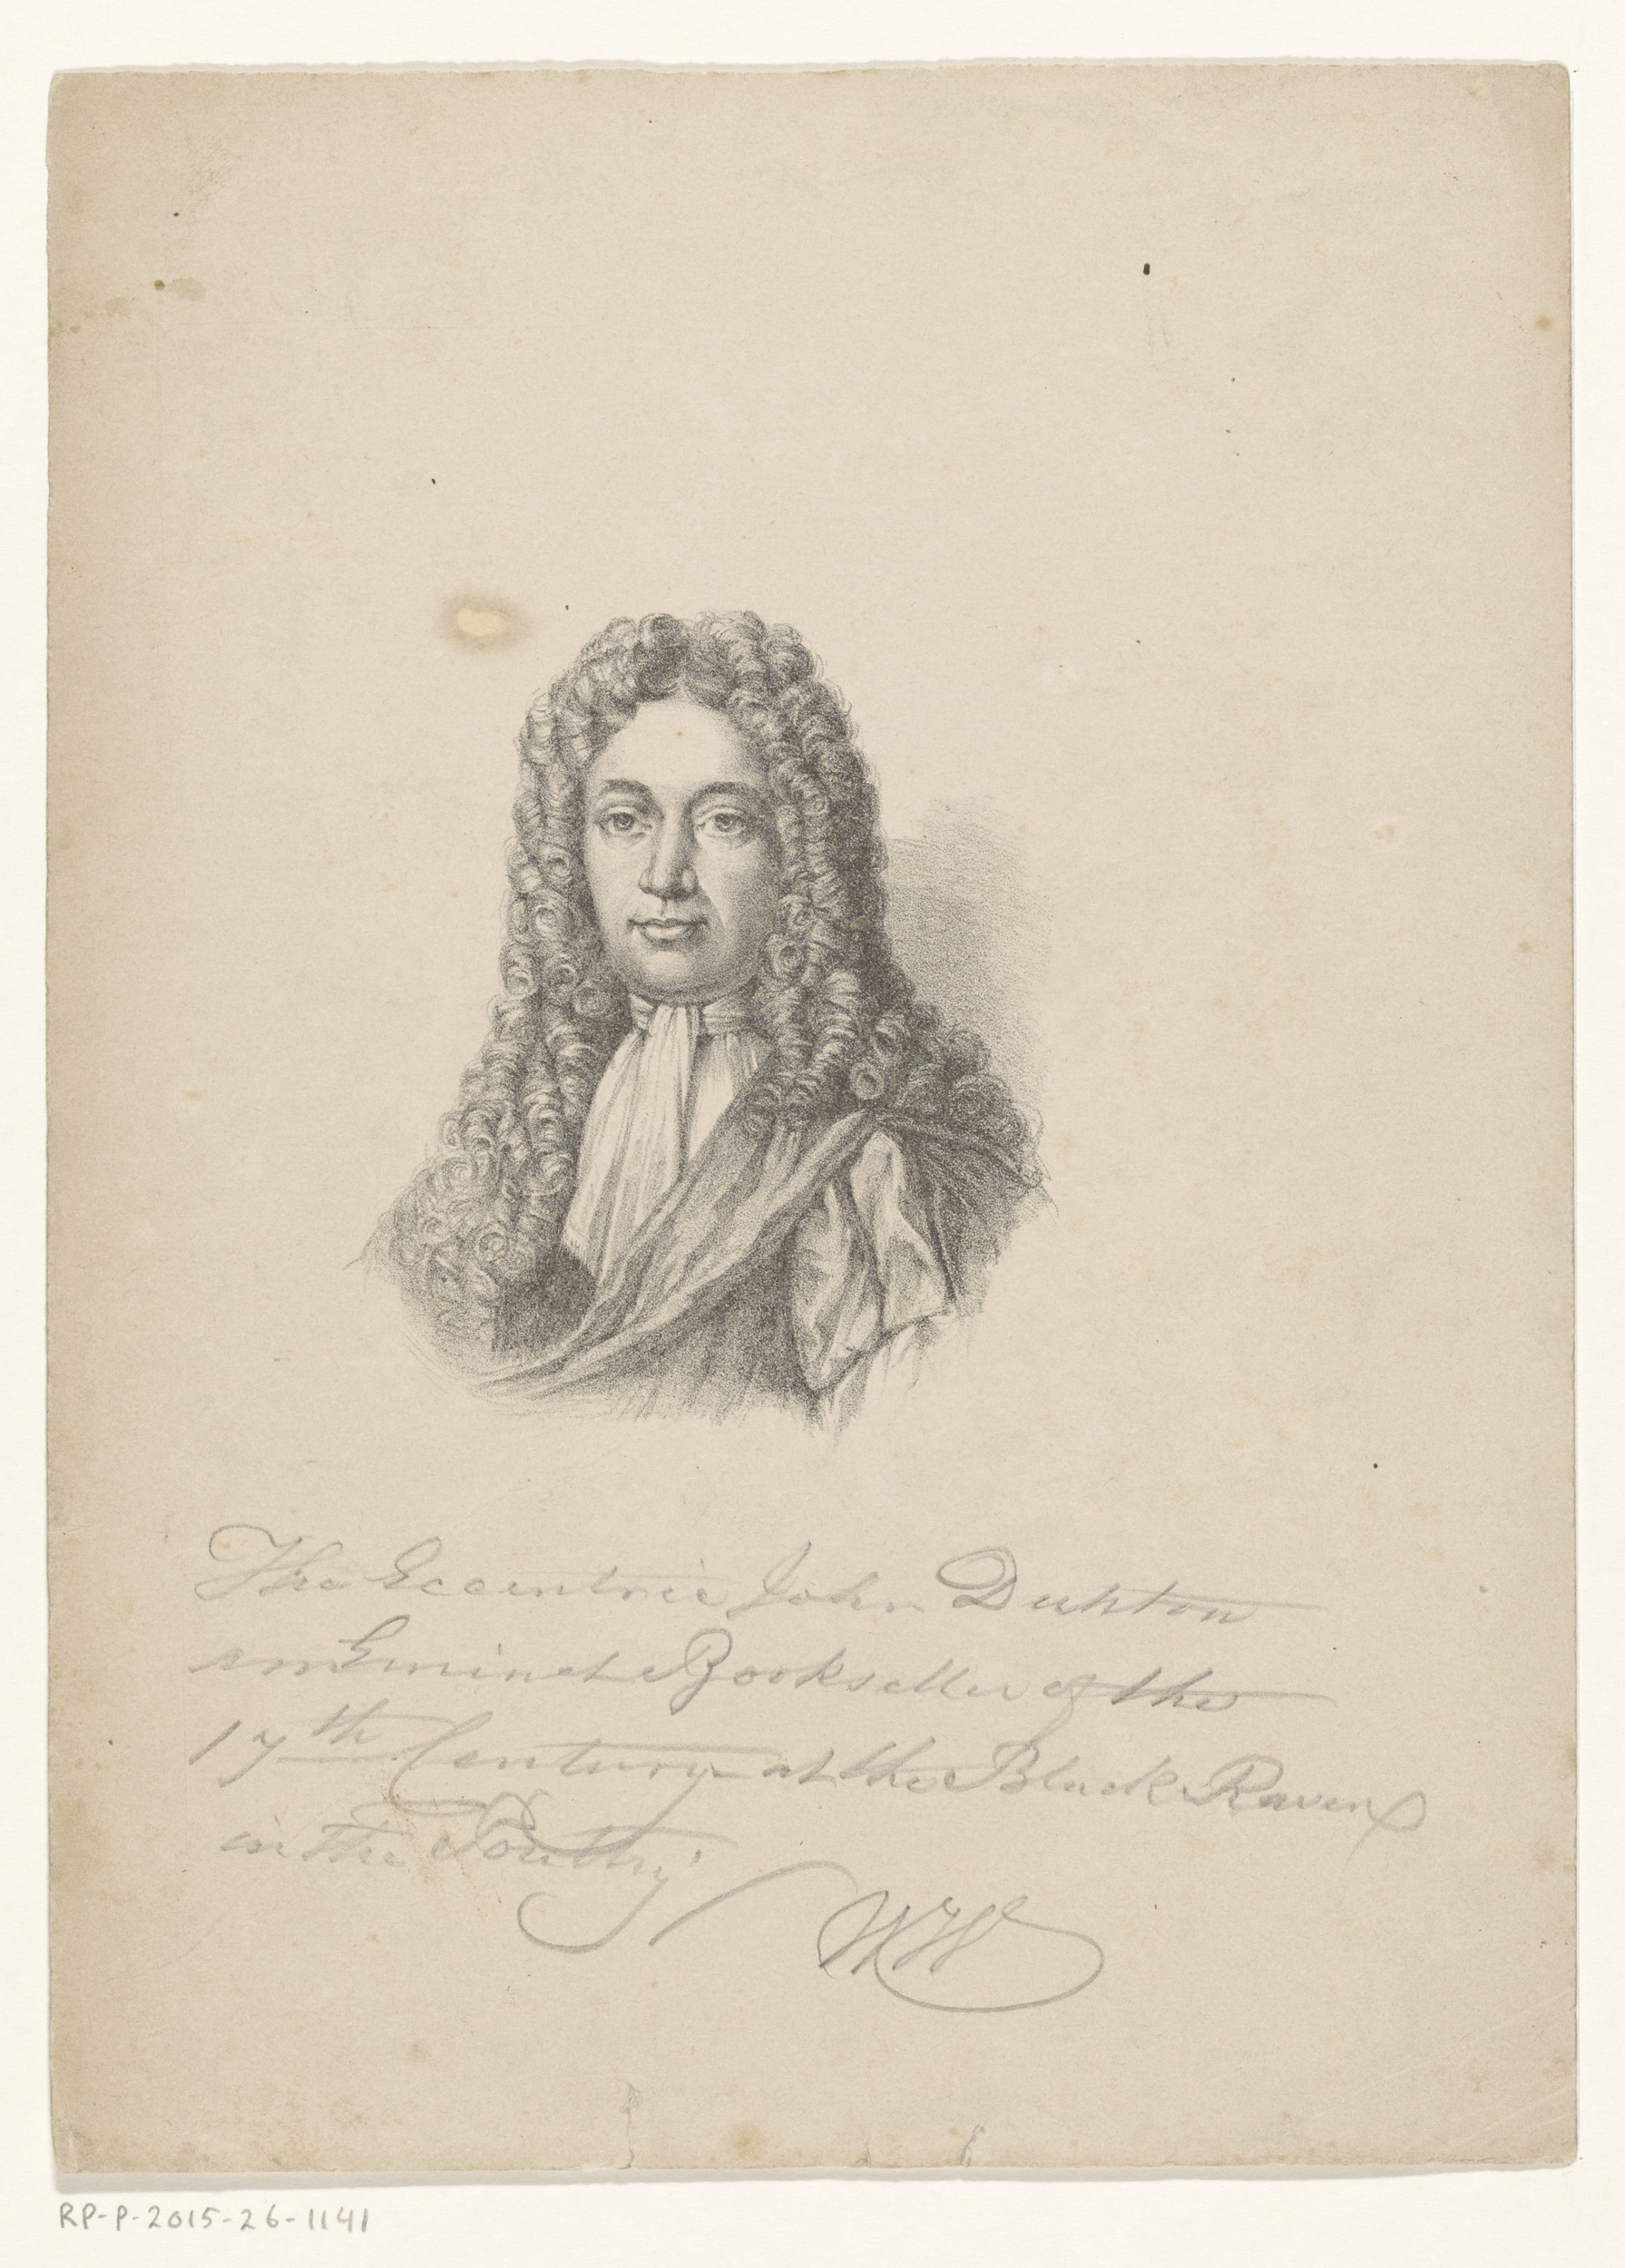 The Eccentric John Dunton
an Eminet Bookseller of the
17th Century at the Black Raven
in the Poultry
WH
RP-P-2015-26-1141